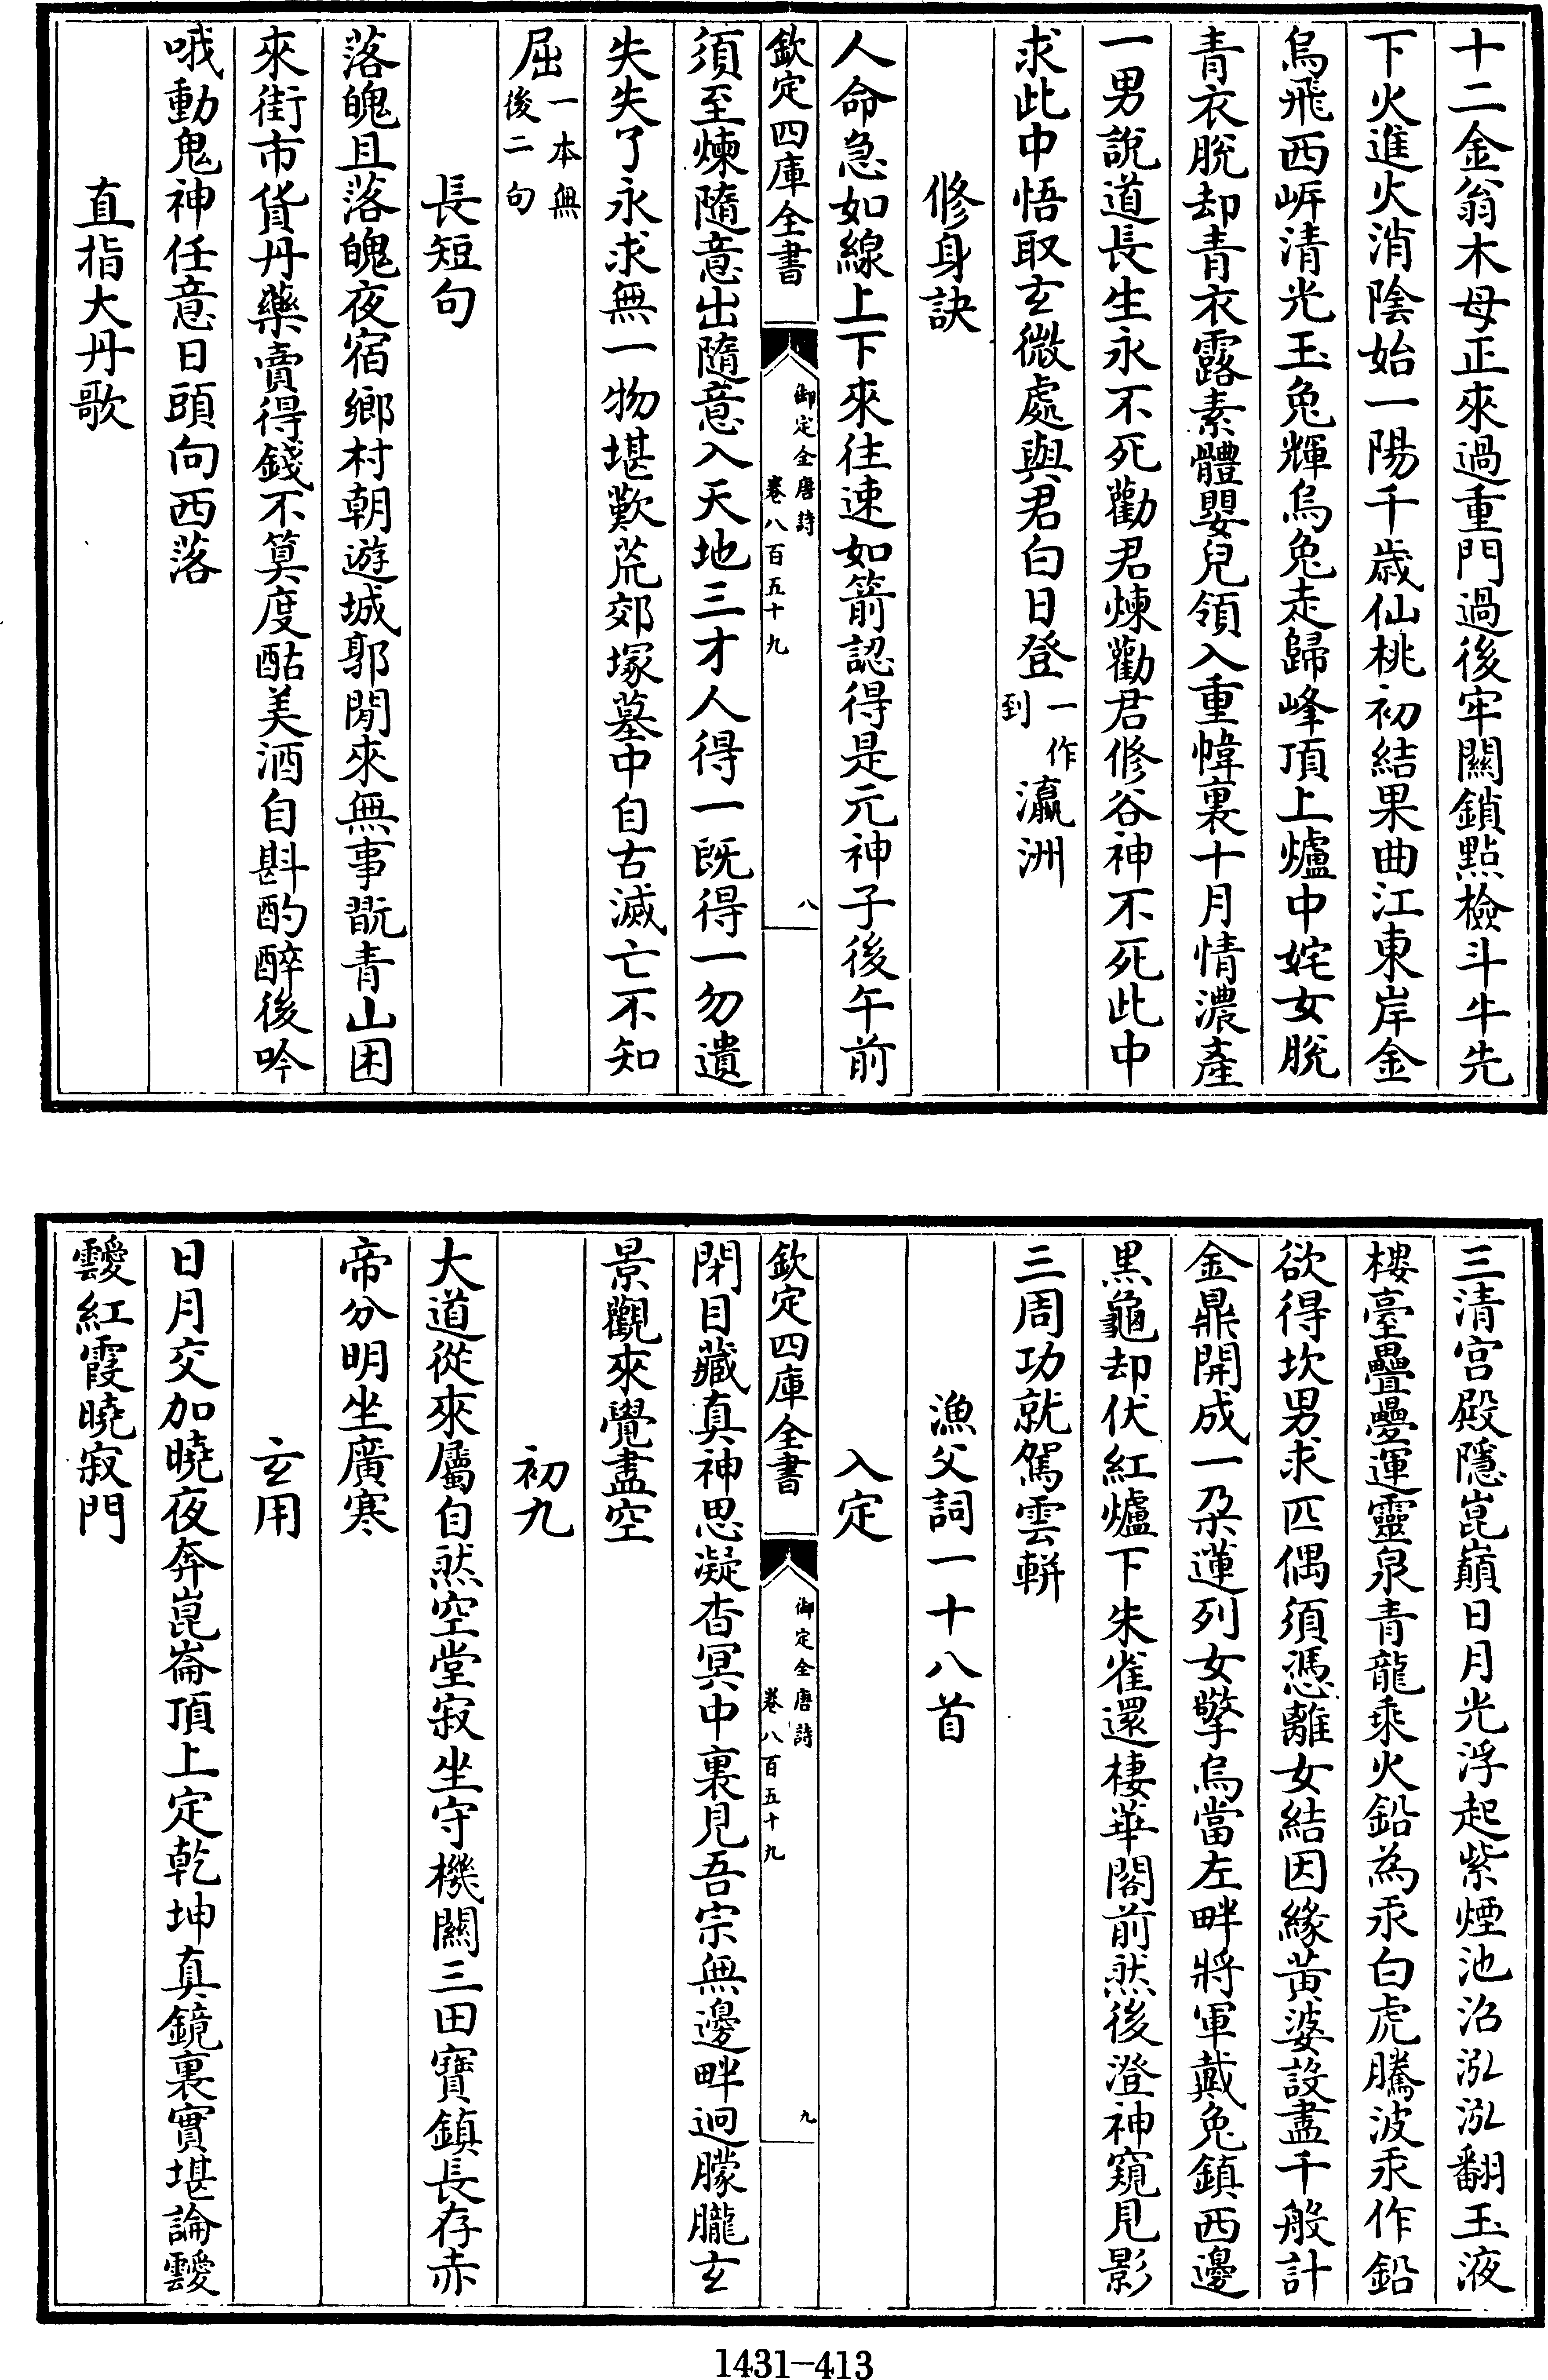 十二金翁木母正來過重門過後牢關鎖點檢斗牛先
下火進火消陰始一陽千歳仙桃初結果曲江東岸金
烏飛西㟁清光玉兔輝烏兔走歸峰頂上爐中姹女脫
青衣脫却青衣露素體嬰兒領入重幃裏十月情濃產
一男說道長生永不死勸君煉勸君修谷神不死此中
求此中悟取玄微處與君白日登一作到瀛洲
修身訣
人命急如線上下來往速如箭認得是元神子後午前
欽定四庫全書
御定全唐詩
卷八百五十九
八
須至煉隨意出隨意入天地三才人得一既得一勿遺
失失了永求無一物堪歎荒郊塚墓中自古滅亡不知
屈一本無後二句
長短句
落魄且落魄夜宿鄉村朝遊城郭閒來無事翫青山困
來街市貨丹藥賣得錢不筭度酤美酒自斟酌醉後吟
哦動鬼神任意日頭向西落
直指大丹歌
三清宫殿隱崑巔日月光浮起紫煙池沼泓泓翻玉液
樓臺疊疊運靈泉青龍乘火鉛為汞白虎騰波汞作鉛
欲得坎男求匹偶須憑離女結因緣黃婆設盡千般計
金鼎開成一朶蓮列女擎烏當左畔將軍戴兔鎮西邊
黑龜却伏紅爐下朱雀還棲華閣前然後澄神窺見影
三周功就駕雲軿
漁父詞一十八首
入定
欽定四庫全書
御定全唐詩
卷八百五十九
九
閉目藏真神思凝杳冥中裏見吾宗無邊畔迥朦朧玄
景觀來覺盡空
初九
大道從來屬自然空堂寂坐守機關三田寶鎮長存赤
帝分明坐廣寒
玄用
日月交加曉夜奔崑崙頂上定乾坤真鏡裏實堪論靉
靉紅霞曉寂門
1431—413